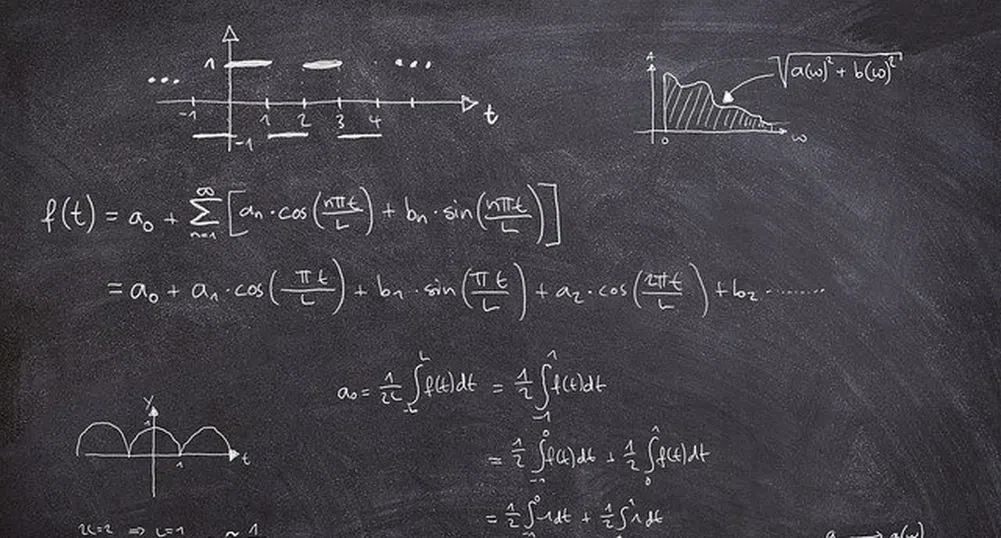 1
...
...
-1 1 2 3 4 t
-1
A
√(a(ω)² + b(ω)²)
0 ω
f(t) = a₀ + ∑ₙ₌₁^∞ [aₙ·cos(nπt/L) + bₙ·sin(nπt/L)]
= a₀ + a₁·cos(πt/L) + b₁·sin(πt/L) + a₂·cos(2πt/L) + b₂ ........
a₀ = 1/2L ∫₋L^L f(t)dt = 1/2 ∫₋₁^1 f(t)dt
y
1
1 t
= 1/2 ∫₋₁^0 f(t)dt + 1/2 ∫₀^1 f(t)dt
= 1/2 ∫₋₁^0 -1dt + 1/2 ∫^1 1dt
2L=2 ⇒ L=1
a → a(ω)